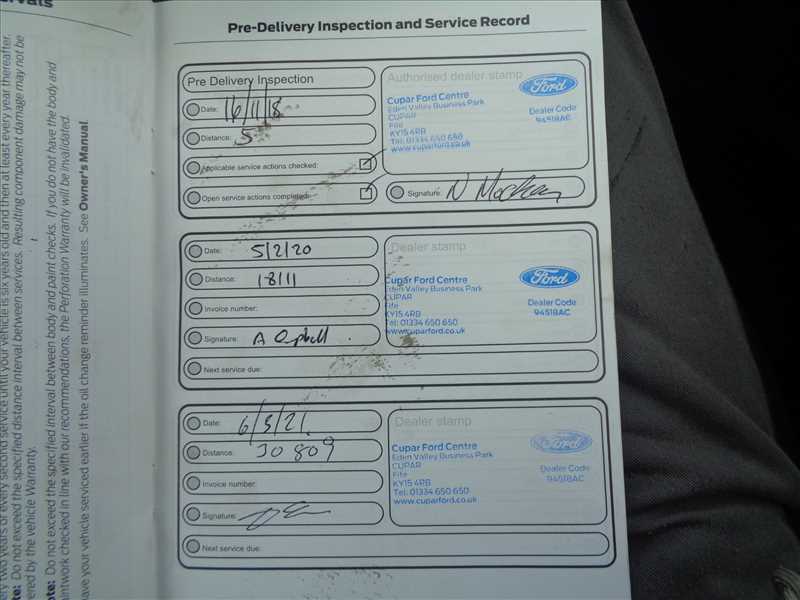 ervals
ery two years or every second service until your vehicle is six years old and then at least every year thereafter.
te: Do not exceed the specified distance interval between services. Resulting component damage may not be
ered by the vehicle Warranty.
ote: Do not exceed the specified interval between body and paint checks. If you do not have the body and
aintwork checked in line with our recommendations, the Perforation Warranty will be invalidated.
ave your vehicle serviced earlier if the oil change reminder illuminates. See Owner's Manual.
Pre-Delivery Inspection and Service Record
Pre Delivery Inspection
Date: 16/11/18
Distance: 5
Applicable service actions checked:
Open service actions completed:
Authorised dealer stamp
Ford
Cupar Ford Centre
Eden Valley Business Park
CUPAR
Fife
KY15 4RB
Tel: 01334 650 650
www.cuparford.co.uk
Dealer Code
94518AC
Signature: N
Date: 5/2/20
Distance: 18111
Invoice number:
Signature: A
Next service due:
Dealer stamp
Ford
Cupar Ford Centre
Eden Valley Business Park
CUPAR
Fife
KY15 4RB
Tel: 01334 650 650
www.cuparford.co.uk
Dealer Code
94518AC
Date: 6/5/21
Distance: 30809
Invoice number:
Signature:
Next service due:
Dealer stamp
Ford
Cupar Ford Centre
Eden Valley Business Park
CUPAR
Fife
KY15 4RB
Tel: 01334 650 650
www.cuparford.co.uk
Dealer Code
94518AC